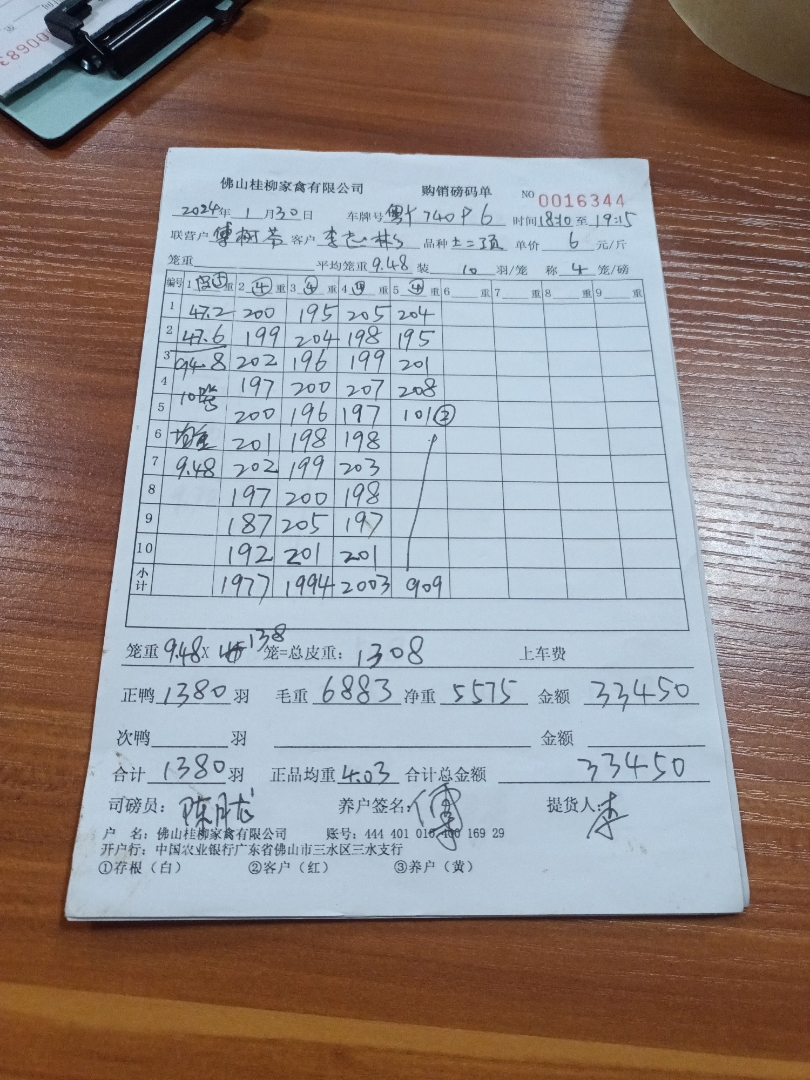 00683
佛山桂柳家禽有限公司 购销磅码单 NO 0016344
2024年 1月30日 车牌号 740P6 时间18:10至19:15
联营户 傅树苓 客户 李志 品种 土二 单价 6 元/斤
笼重 平均笼重9.48 装 10 羽/笼 称 4 笼/磅
编号 1 重 2 ④ 重 3 ④ 重 4 ④ 重 5 ④ 重 6 重 7 重 8 重 9 重
1 47.2 200 195 205 204
2 47.6 199 204 198 195
3 94.8 202 196 199 201
4 10 197 200 207 208
5 200 196 197 101②
6 201 198 198
7 9.48 202 199 203
8 197 200 198
9 187 205 197
10 192 201 201
小计 1977 1994 2003 909
笼重 9.48 X 138 笼=总皮重: 1308 上车费
正鸭 1380 羽 毛重 6883 净重 5575 金额 33450
次鸭 羽 金额
合计 1380 羽 正品均重 4.03 合计总金额 33450
司磅员: 陈月龙 养户签名: 傅 提货人: 李
户 名: 佛山桂柳家禽有限公司 账号: 444 401 010 400 169 29
开户行: 中国农业银行广东省佛山市三水区三水支行
①存根(白) ②客户(红) ③养户(黄)